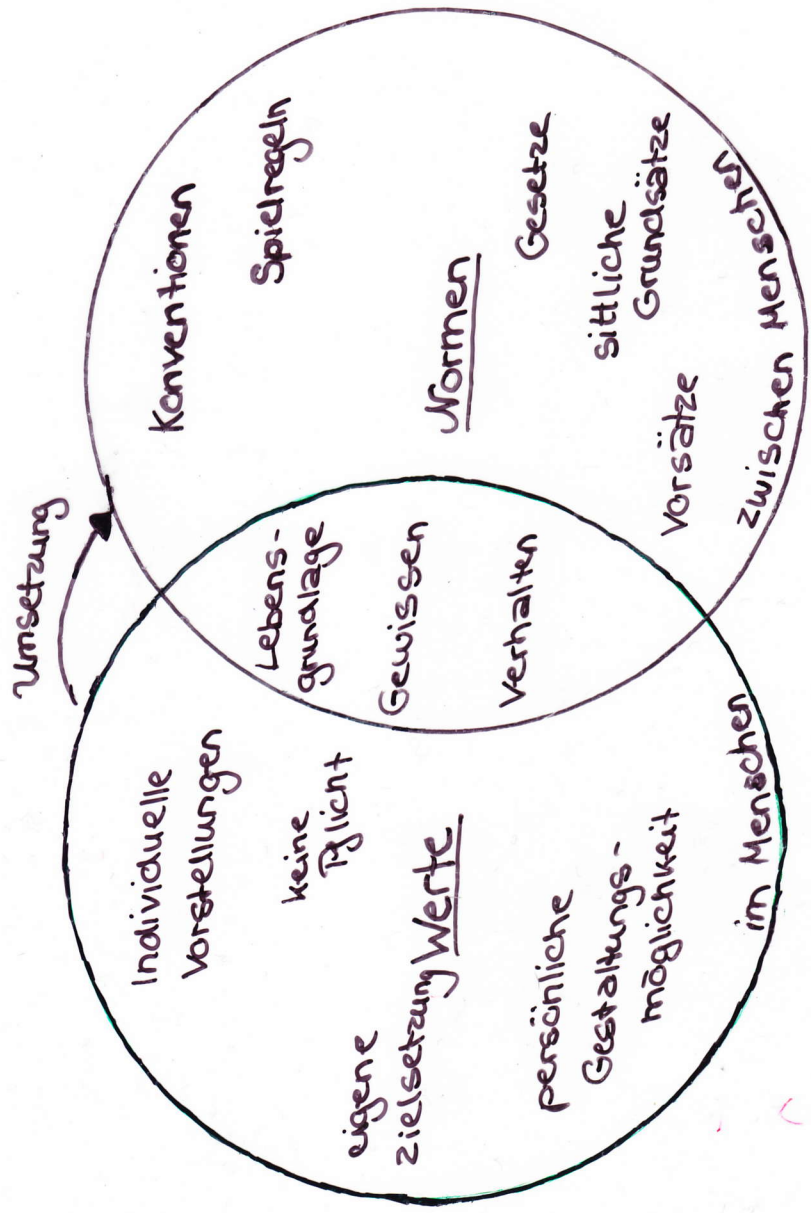 Umsetzung
Individuelle
Vorstellungen
keine
Pflicht
eigene
Zielsetzung
Werte
persönliche
Gestaltungs-
möglichkeit
im Menschen
Lebens-
grundlage
Gewissen
Verhalten
Konventionen
Spielregeln
Normen
Gesetze
sittliche
Grundsätze
Vorsätze
zwischen Menschen